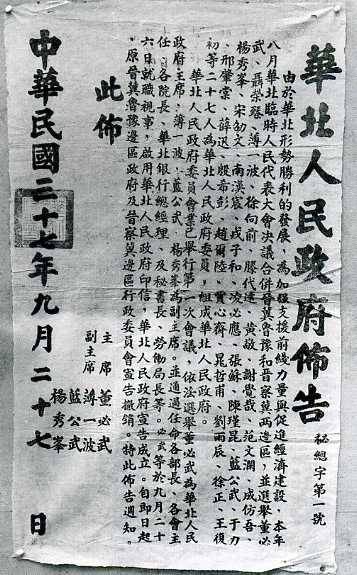 華北人民政府佈告
秘總字第一號
由於華北形勢勝利的發展，為加強支援前綫力量與促進經濟建設，本年
八月華北臨時人民代表大會決議合併晉冀魯豫和晉察冀兩邊區，並選舉董必
武、聶榮臻、薄一波、徐向前、滕代遠、黃敬、謝覺哉、范文瀾、成仿吾、
楊秀峯、宋劭文、南漢宸、戎子和、凌必應、張蘇、陳瑾昆、藍公武、于力
、邢肇棠、薛迅、殷希彭、趙爾陸、賈心齋、晁哲甫、劉雨辰、徐正、王復
初等二十七人為華北人民政府委員，組成華北人民政府。
華北人民政府委員會業已舉行第一次會議，依法選舉董必武為華北人民
政府主席，薄一波、藍公武、楊秀峯為副主席。並通過任命各部長、各會主
任、各院長、華北銀行總經理、及秘書長、勞働局長等。必武等於九月二十
六日就職視事，啟用華北人民政府印信，華北人民政府宣告成立。自即日起
，原晉冀魯豫邊區政府及晉察冀邊區行政委員會宣告撤銷。特此佈告通知。
此佈
主席 董必武
副主席 薄一波
藍公武
楊秀峯
中華民國三十七年九月二十七日